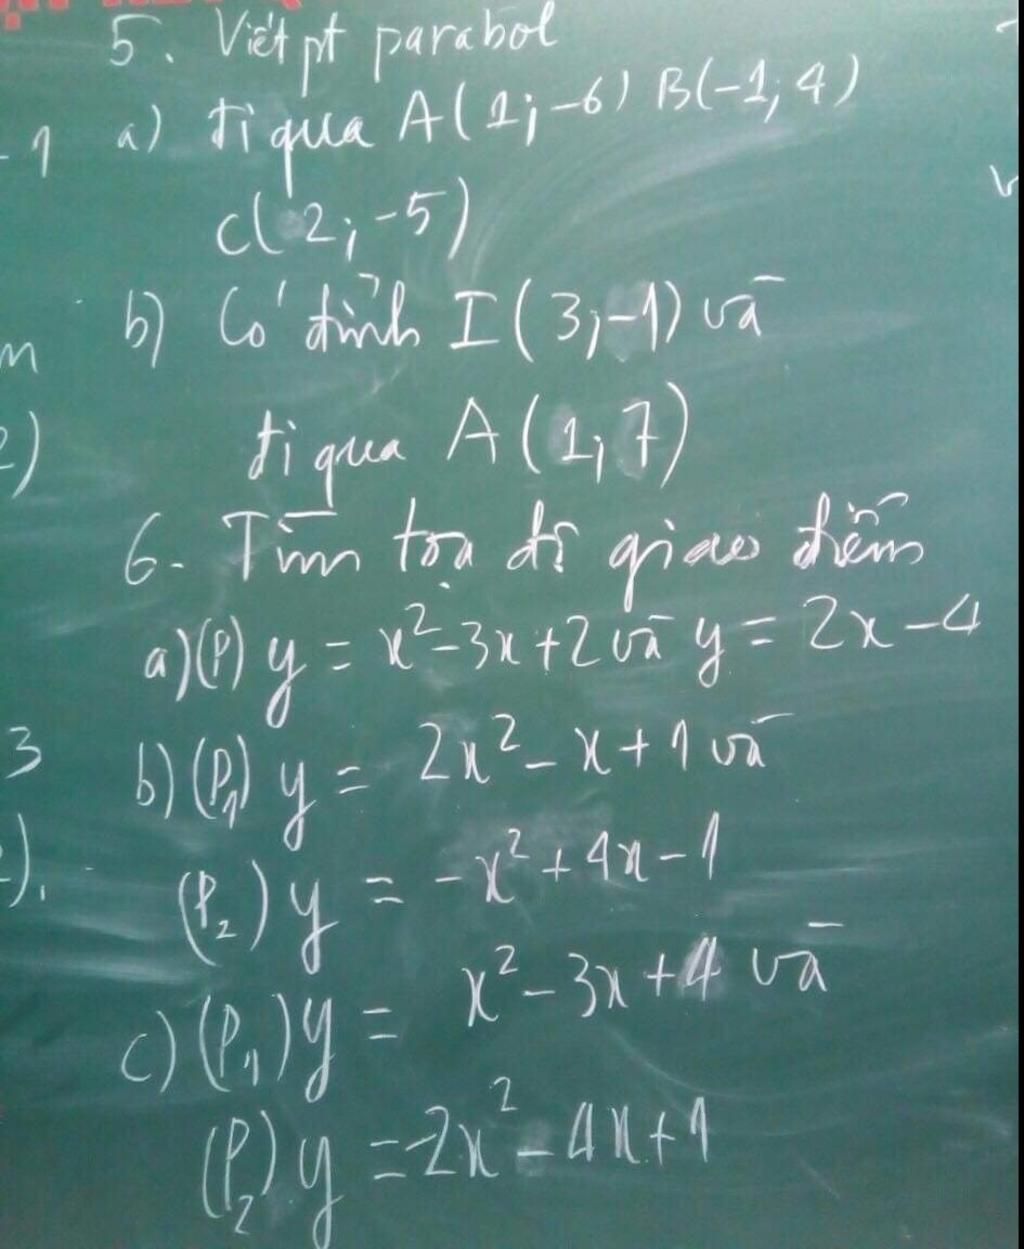 5. Viết pt parabol
a) đi qua A(1;-6) B(-1;4)
C(2;-5)
b) Có đỉnh I(3;-1) và
đi qua A(1;7)
6. Tìm tọa độ giao điểm
a)(P) y = x²-3x+2 và y = 2x-4
b)(P₁) y = 2x²-x+1 và
(P₂) y = -x²+4x-1
c)(P₁) y = x²-3x+4 và
(P₂) y = -2x²-4x+1